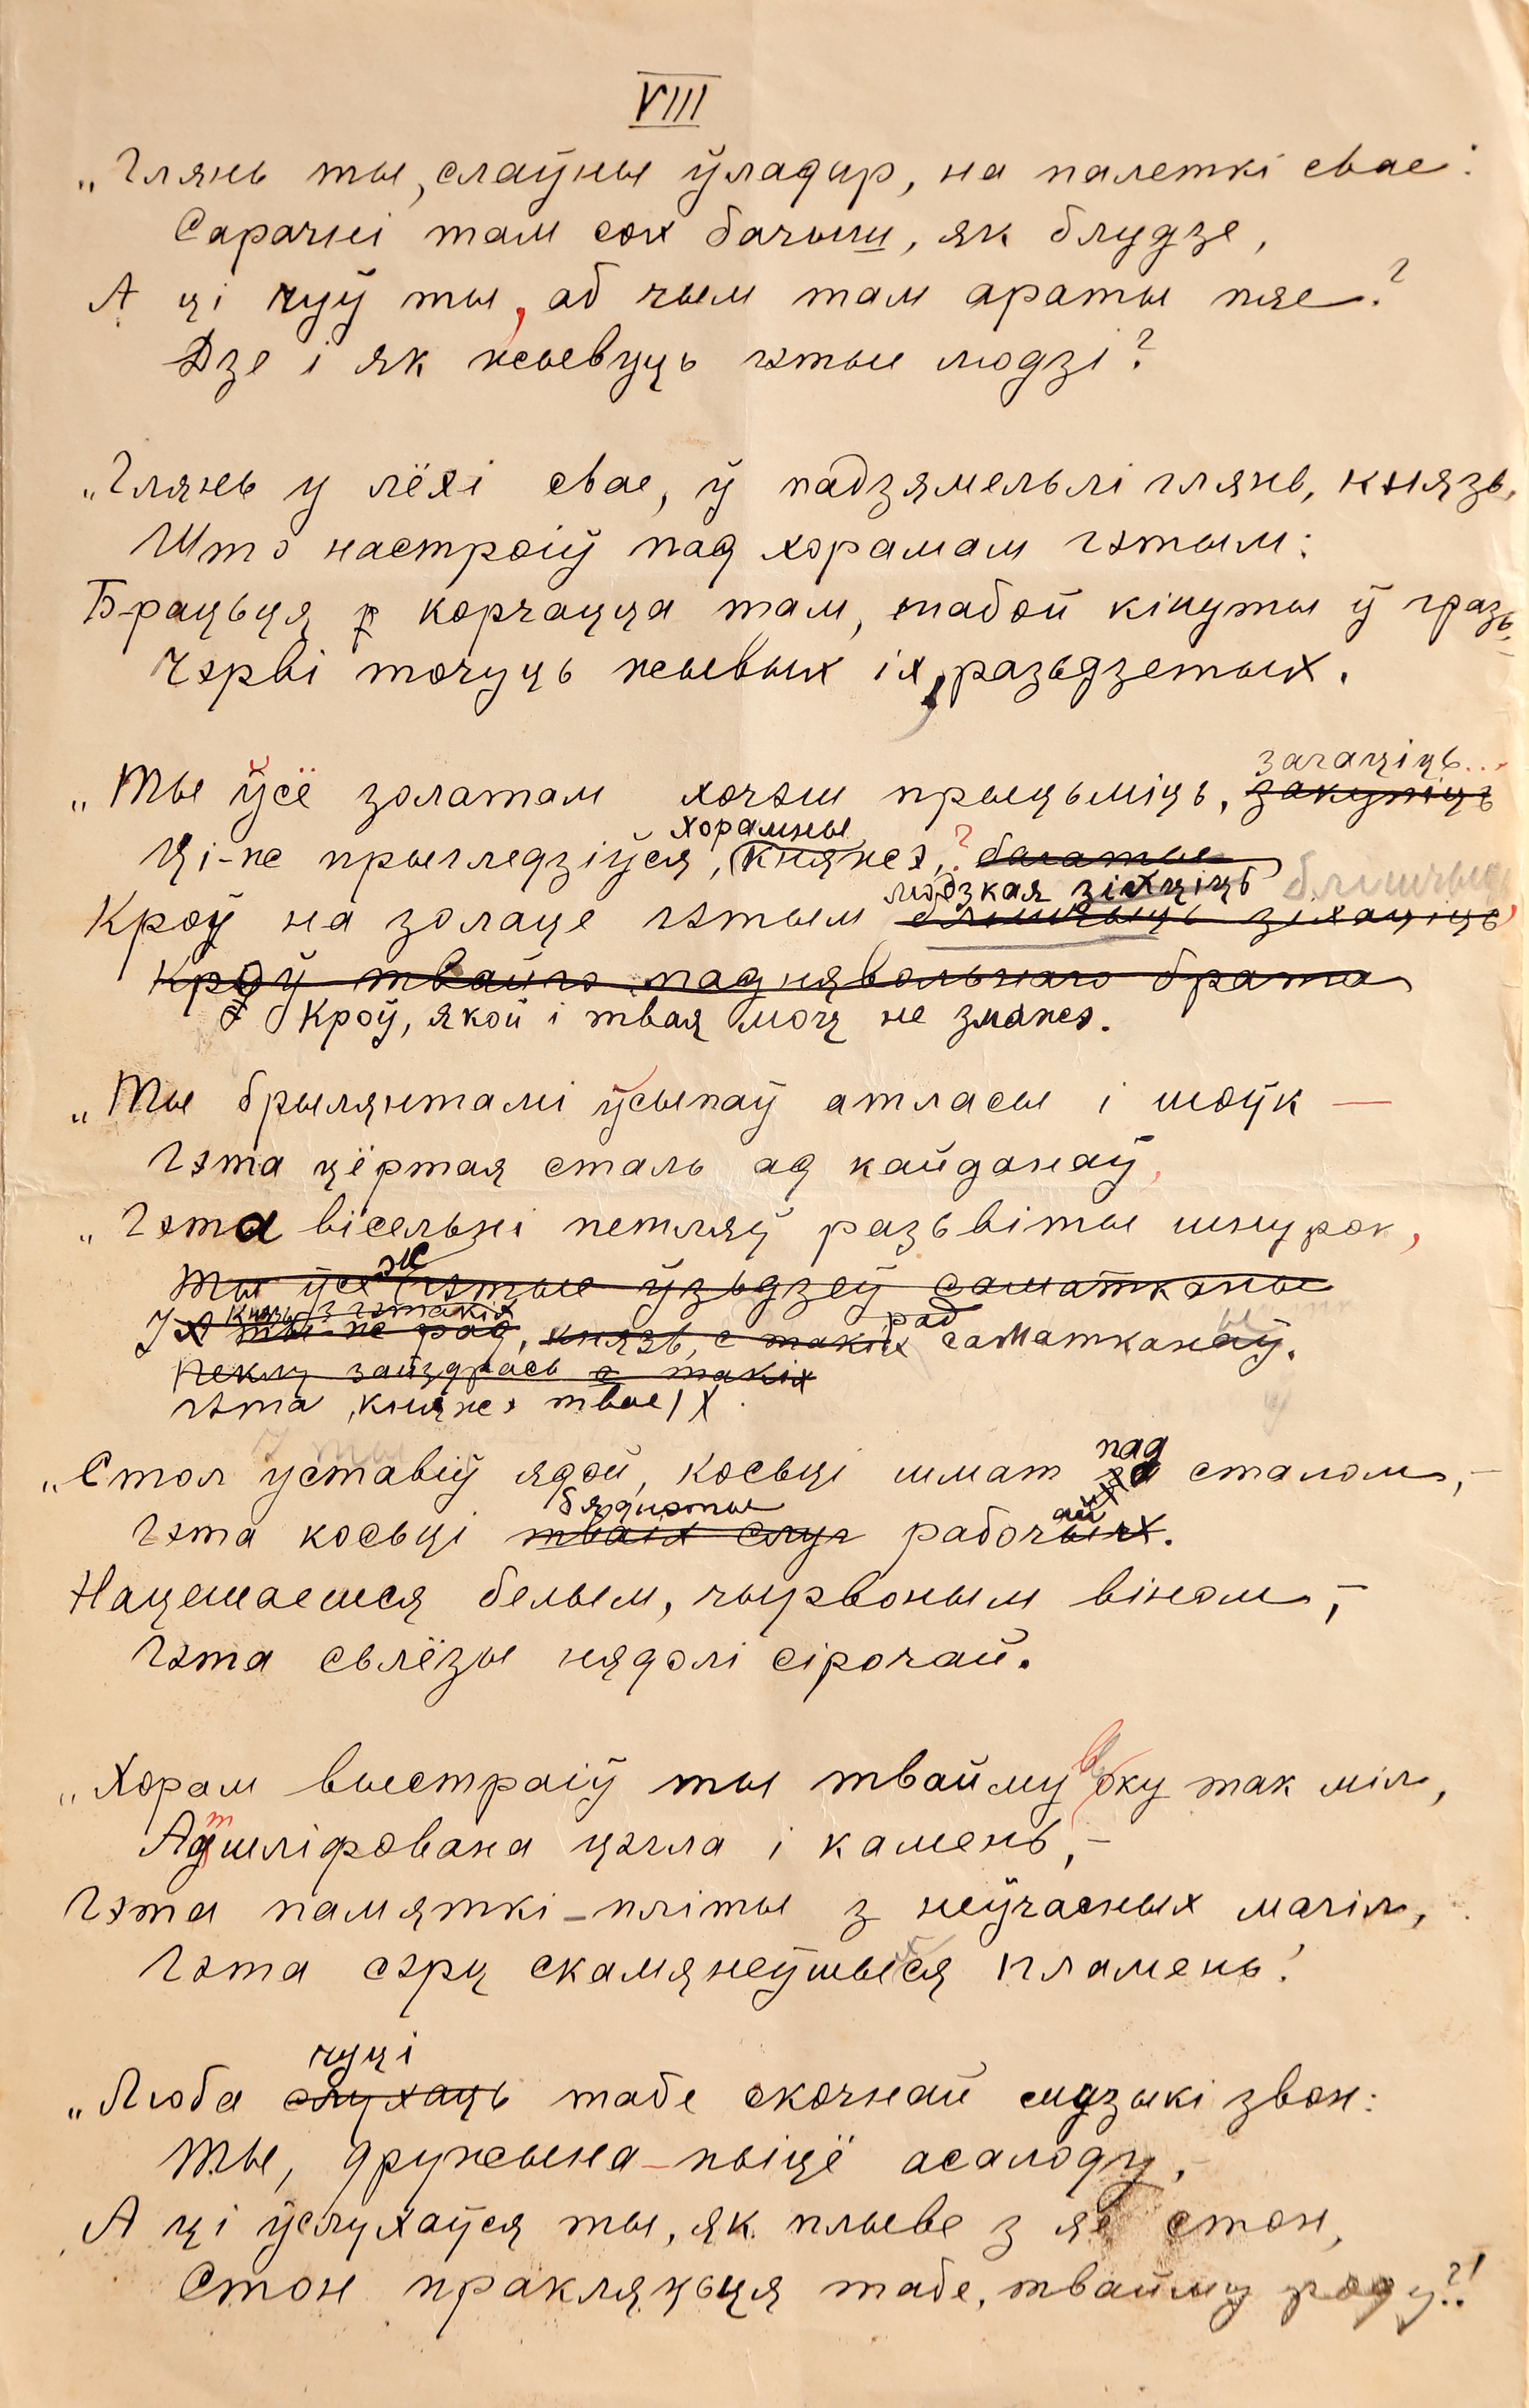 VIII
„Глянь ты, слаўны ўладар, на палеткі свае:
Сарачні там сох бачыш, як блудзе,
А ці чуў ты, аб чым там араты пяе?
Дзе і як жывуць гэтые людзі?
„Глянь у лёхі свае, ў падзямельлі глянь, князь,
Што настроіў пад хорамам гэтым:
Брацьця корчацца там, табой кінуты ў гразь,
Чэрві точуць жывых іх, разьдзетых.
загаціць...
„Ты ўсё золатам хочэш прыцьміць, закупіць
хорамны
Ці-ж прыгледзіўся, княжэ,? багатые
людзкая зіхціць блішчыць
Кроў на золаце гэтым блішчыць зіхаціць,
Кроў твайго паднявольнаго брата
Кроў, якой і твая моч не зможэ.
„Ты брылянтамі ўсыпаў атласы і шоўк —
Гэта цёртая сталь ад кайданаў,
„Гэта вісельні петляў разьвіты шнурок,
Ты ўсе гэтые ўзьдзеў саматканые
князь з гэтакіх рад
ты-ж рад, князь, с такіх саматканаў.
Пеклу зайздрось с такіх
гэта, княжэ твае
пад
„Стол уставіў ядой, косьці шмат за сталом,—
бяднэты ай
Гэта косьці тваіх слуг рабочых.
Нацешаешся белым, чырвоным віном,—
Гэта сьлёзы нядолі сірочай.
„Хорам выстраіў ты твайму воку так міл,
т
Адшліфована цэгла і камень,—
Гэта памяткі-пліты з неўчасных магіл,
Гэта сэрц скамянеўшыйся пламень!
чуці
„Люба слухаць табе скочнай музыкі звон:
Ты, дружына-пьіцё асалоду,
А ці ўслухаўся ты, як плыве з яе стон,
Стон пракляцьця табе, твайму роду?!